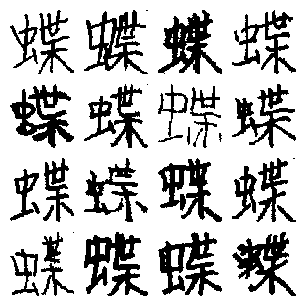 蝶蝶蝶蝶
蝶蝶蝶蝶
蝶蝶蝶蝶
蝶蝶蝶蝶